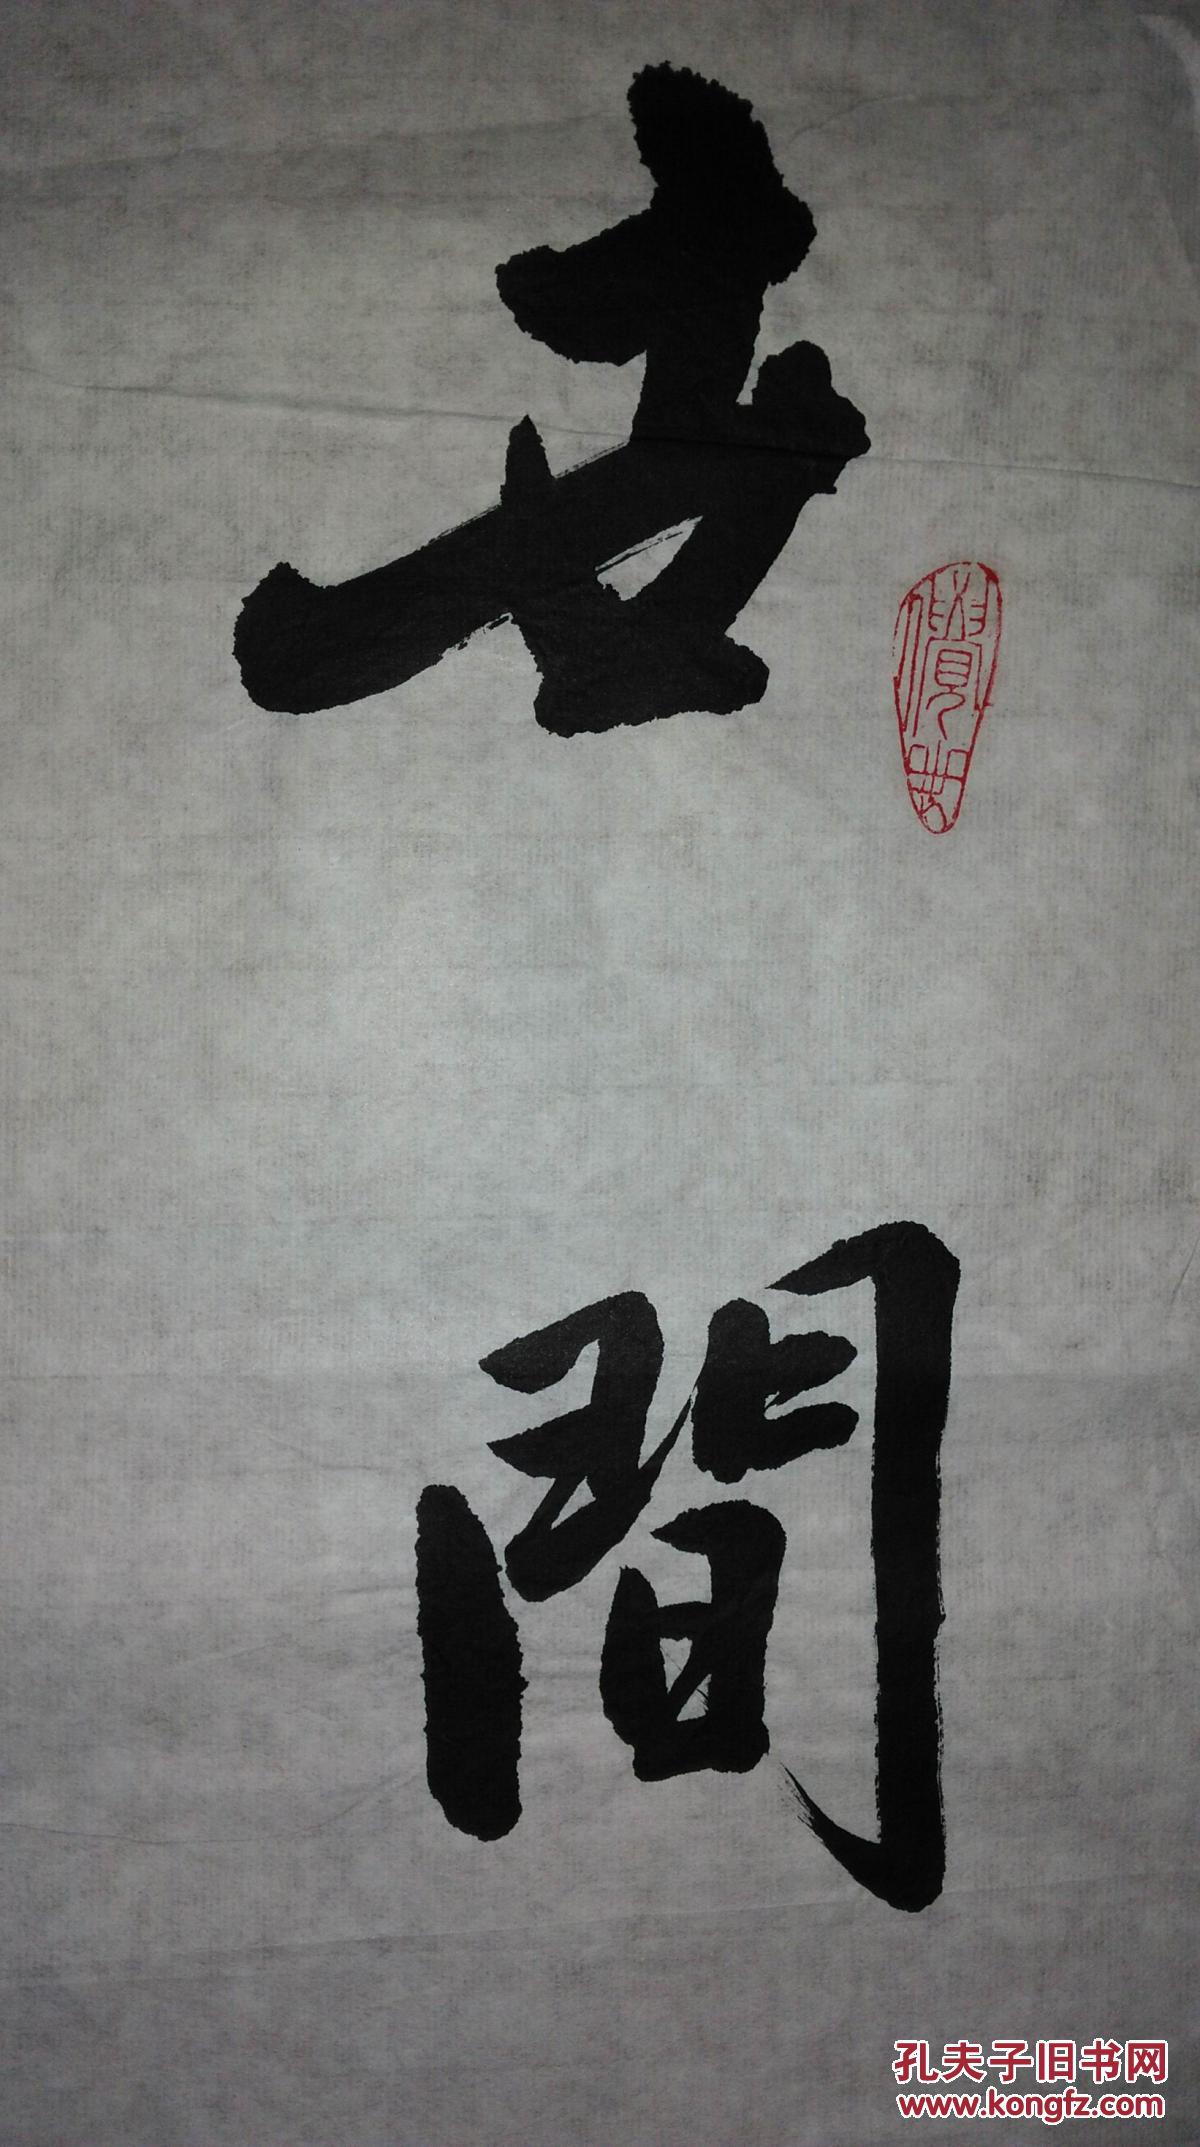 世
間
孔夫子旧书网
www.kongfz.com